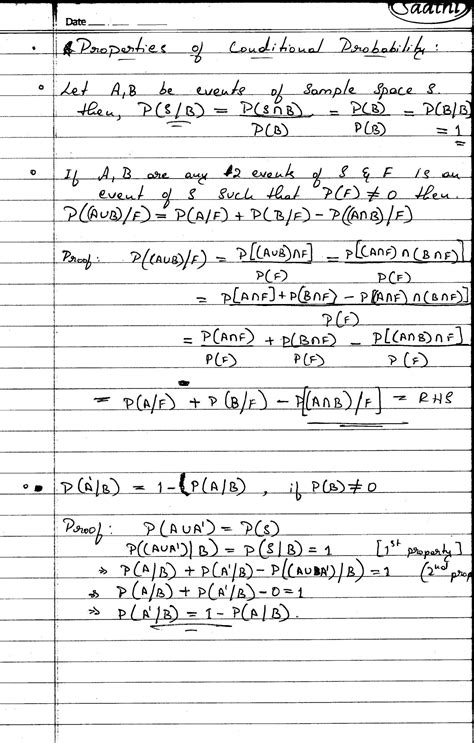 Saathi
Date
Properties of Conditional Probability :
Let A, B be events of sample space S.
then, P(S/B) = P(S∩B)/P(B) = P(B)/P(B) = P(B/B)
= 1
If A, B are any 2 events of S & F is an
event of S such that P(F) ≠ 0 then.
P((A∪B)/F) = P(A/F) + P(B/F) - P((A∩B)/F)
Proof: P((A∪B)/F) = P[(A∪B)∩F]/P(F) = P[(A∩F) ∩ (B∩F)]/P(F)
= P[A∩F] + P(B∩F) - P[(A∩F) ∩ (B∩F)]/P(F)
= P(A∩F)/P(F) + P(B∩F)/P(F) - P[(A∩B)∩F]/P(F)
= P(A/F) + P(B/F) - P[(A∩B)/F] = RHS
P(A'/B) = 1 - P(A/B) , if P(B) ≠ 0
Proof: P(A∪A') = P(S)
P((A∪A')|B) = P(S|B) = 1 [1st property]
⇒ P(A/B) + P(A'/B) - P((A∪A')/B) = 1 (2nd prop
⇒ P(A/B) + P(A'/B) - 0 = 1
⇒ P(A'/B) = 1 - P(A/B).